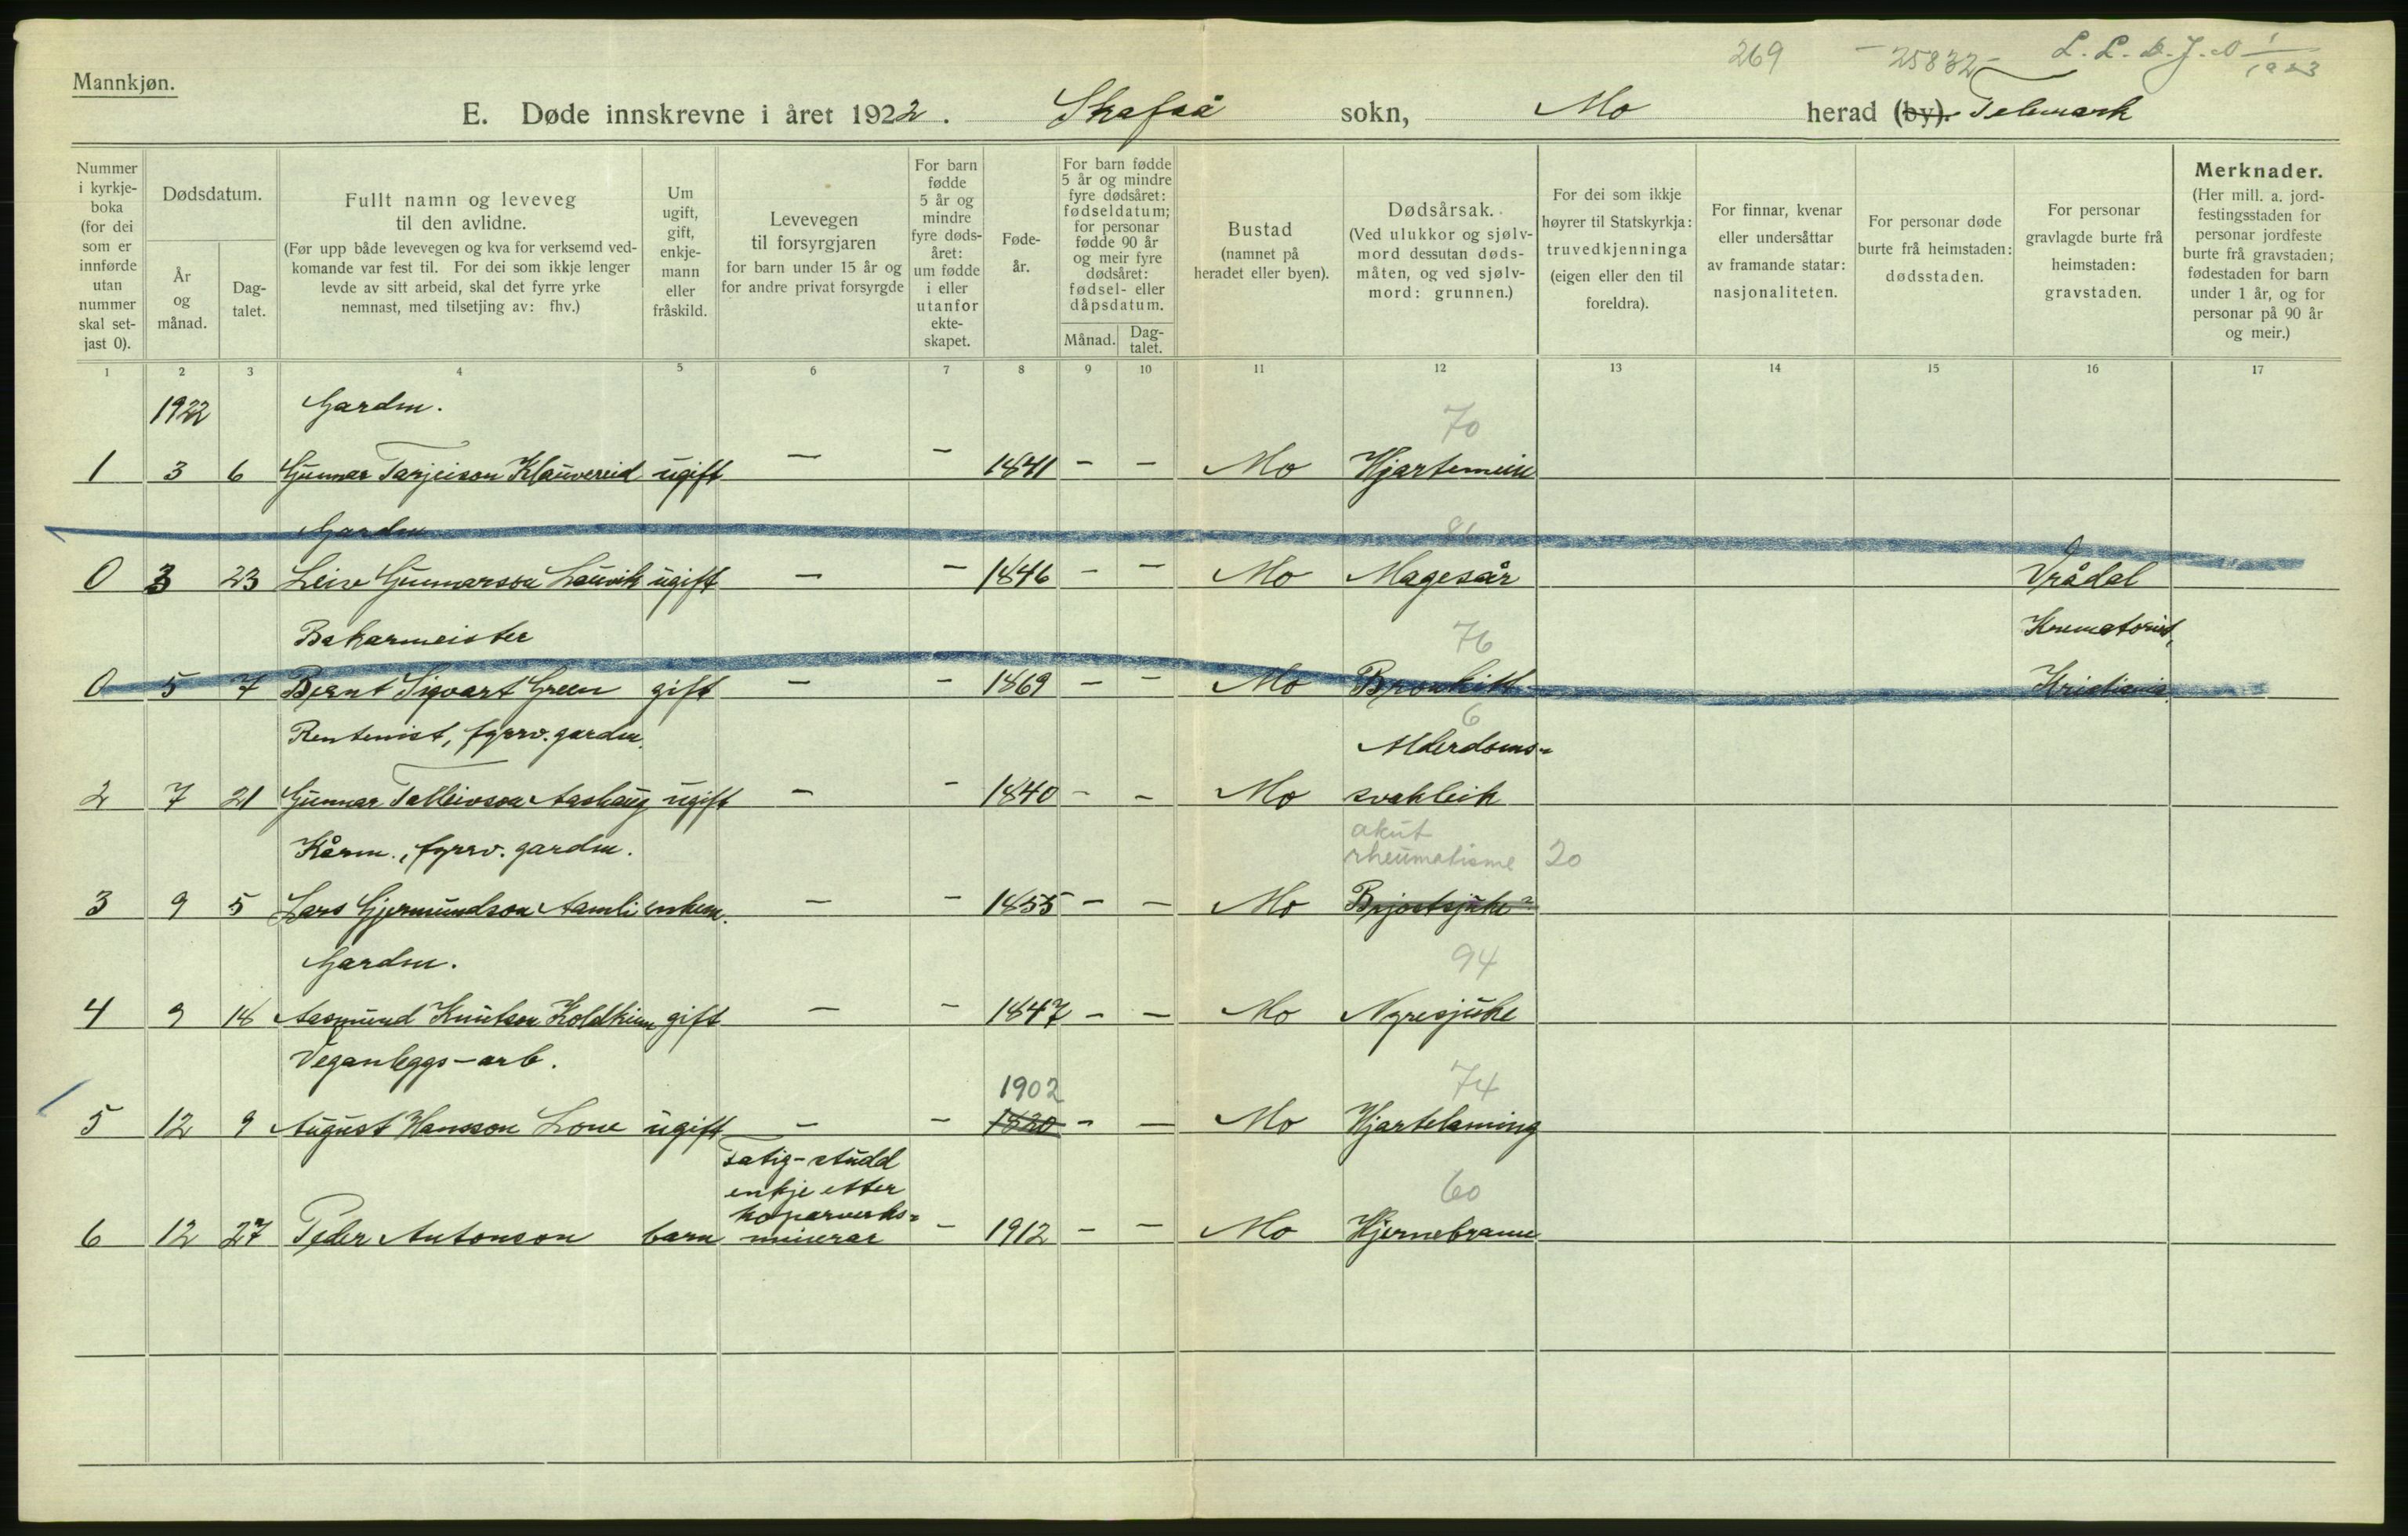 269 - 25832 -
Mannkjøn.
E. Døde innskrevne i året 1922. Skafså sokn, Mo herad (by). Telemark
Nummer i kyrkje-boka (for dei som er innførde utan nummer skal set-jast 0).
Dødsdatum.
År og månad.
Dag-talet.
Fullt namn og leveveg til den avlidne.
(Før upp både levevegen og kva for verksemd ved-
komande var fest til. For dei som ikkje lenger
levde av sitt arbeid, skal det fyrre yrke
nemnast, med tilsetjing av: fhv.)
Um ugift, gift, enkje-mann eller fråskild.
Levevegen til forsyrgjaren
for barn under 15 år og
for andre privat forsyrgde
For barn fødde 5 år og mindre fyre døds-året: um fødde i eller utanfor ekte-skapet.
Føde-år.
For barn fødde 5 år og mindre fyre dødsåret: fødseldatum; for personar fødde 90 år og meir fyre dødsåret: fødsel- eller dåpsdatum.
Månad.
Dag-talet.
Bustad
(namnet på heradet eller byen).
Dødsårsak.
(Ved ulukkor og sjølv-
mord dessutan døds-
måten, og ved sjølv-
mord: grunnen.)
For dei som ikkje høyrer til Statskyrkja: truvedkjenninga (eigen eller den til foreldra).
For finnar, kvenar eller undersåttar av framande statar: nasjonaliteten.
For personar døde burte frå heimstaden: dødsstaden.
For personar gravlagde burte frå heimstaden: gravstaden.
Merknader.
(Her mill. a. jord-
festingsstaden for
personar jordfeste
burte frå gravstaden;
fødestaden for barn
under 1 år, og for
personar på 90 år
og meir.)
1 2 3 4 5 6 7 8 9 10 11 12 13 14 15 16 17
1922 Gardm. 70
1 3 6 Gunnar Tarjeison Klauvereid ugift — — 1841 — — Mo Hjartemein
Gardm 81
0 3 23 Leiv Gunnarson Lauvik ugift — — 1846 — — Mo Magesår Vrådal
Bakarmeister 76 Krematoriet,
0 5 7 Bernt Sigvart Green gift — — 1869 — — Mo Bronkitt Kristiania
Rentenist, fyrrv. gardm. 6 Alderdoms-
2 7 21 Gunnar Talleivson Aashaug ugift — — 1840 — — Mo svakleik
Kårm., fyrrv. gardm. akut rheumatisme 20
3 9 5 Lars Gjermundson Aamli enkem. — — 1855 — — Mo Brjostsjuke?
Gardm. 94
4 9 18 Aasmund Knutson Koldkinn gift — — 1847 — — Mo Nyresjuke
Veganleggs-arb. 1902 74
5 12 9 August Hansson Lone ugift — — 1820 — — Mo Hjartelaming
fatig-studd
enkje etter 60
koparverks-
6 12 27 Peder Antonson barn minerar — 1912 — — Mo Hjernebrann